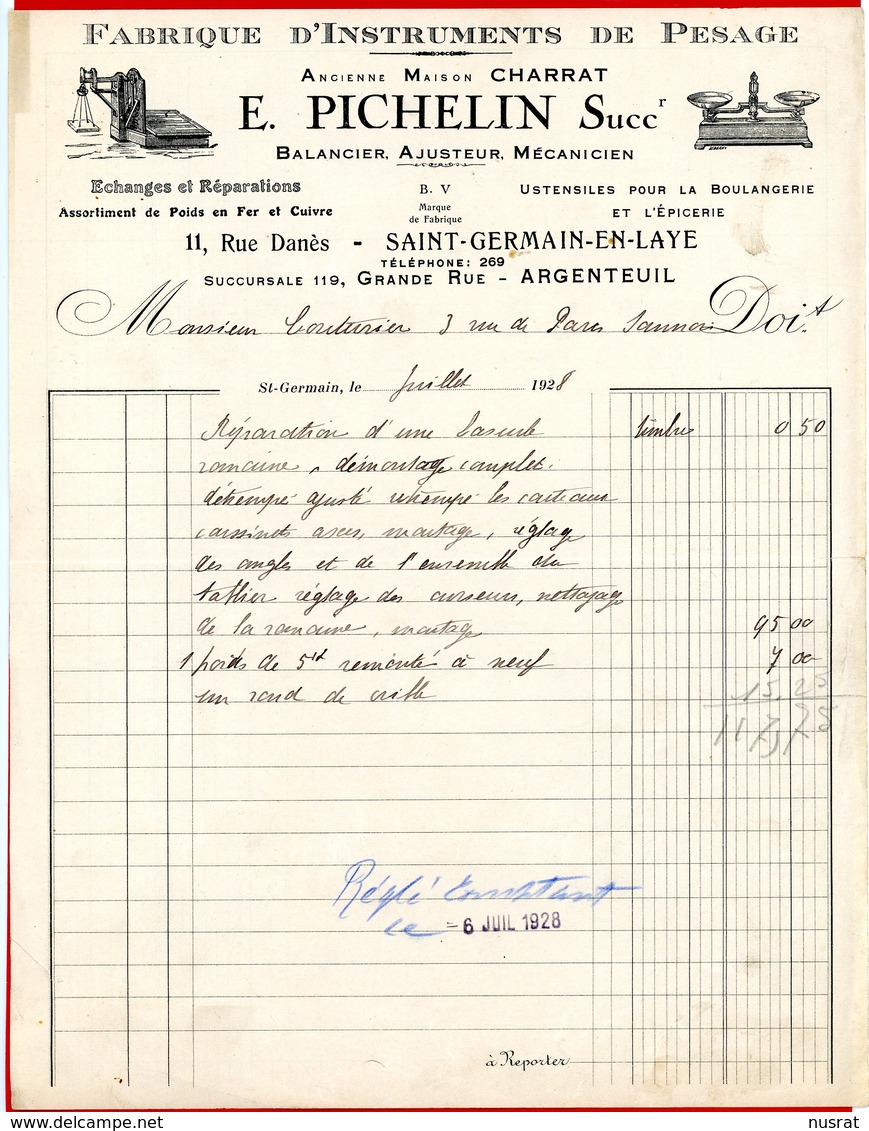 FABRIQUE D'INSTRUMENTS DE PESAGE
ANCIENNE MAISON CHARRAT
E. PICHELIN Succr
BALANCIER, AJUSTEUR, MÉCANICIEN
Echanges et Réparations
Assortiment de Poids en Fer et Cuivre
B. V
Marque
de Fabrique
USTENSILES POUR LA BOULANGERIE
ET L'ÉPICERIE
11, Rue Danès - SAINT-GERMAIN-EN-LAYE
TÉLÉPHONE: 269
SUCCURSALE 119, GRANDE RUE - ARGENTEUIL
Monsieur Couturier 3 rue de Paris Sannois Doit
St-Germain, le Juillet 1928
Réparation d'une bascule timbre 0 50
romaine, démontage complet.
détrempé ajusté retrempé les couteaux
coussinets axes, montage, réglage
des angles et de l'ensemble du
tablier réglage des curseurs, nettoyage
de la romaine, montage 95 00
1 poids de 5 remonté à neuf 7 00
un rond de crible 15.25
117,75
Réglé Comptant
le - 6 JUIL 1928
à Reporter
nusrat